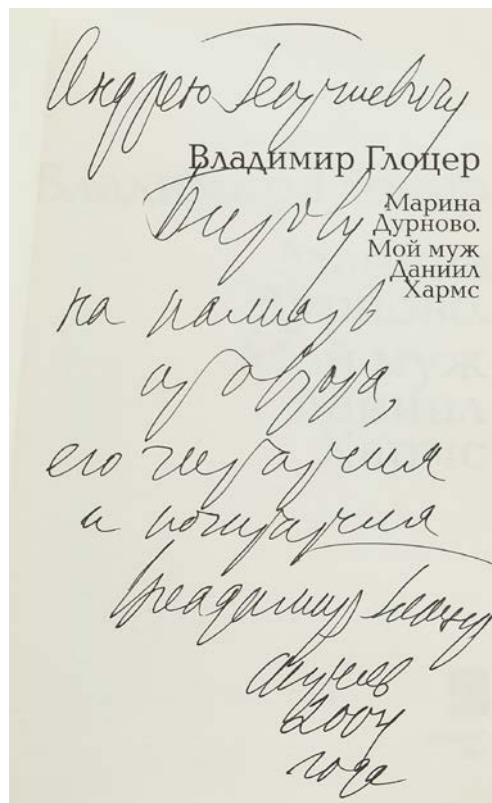 Андрею Георгиевичу
Владимир Глоцер
Битову
Марина
Дурново.
Мой муж
Даниил
Хармс
на память
от автора,
его читателя
и почитателя
Владимир Глоцер
2004
года